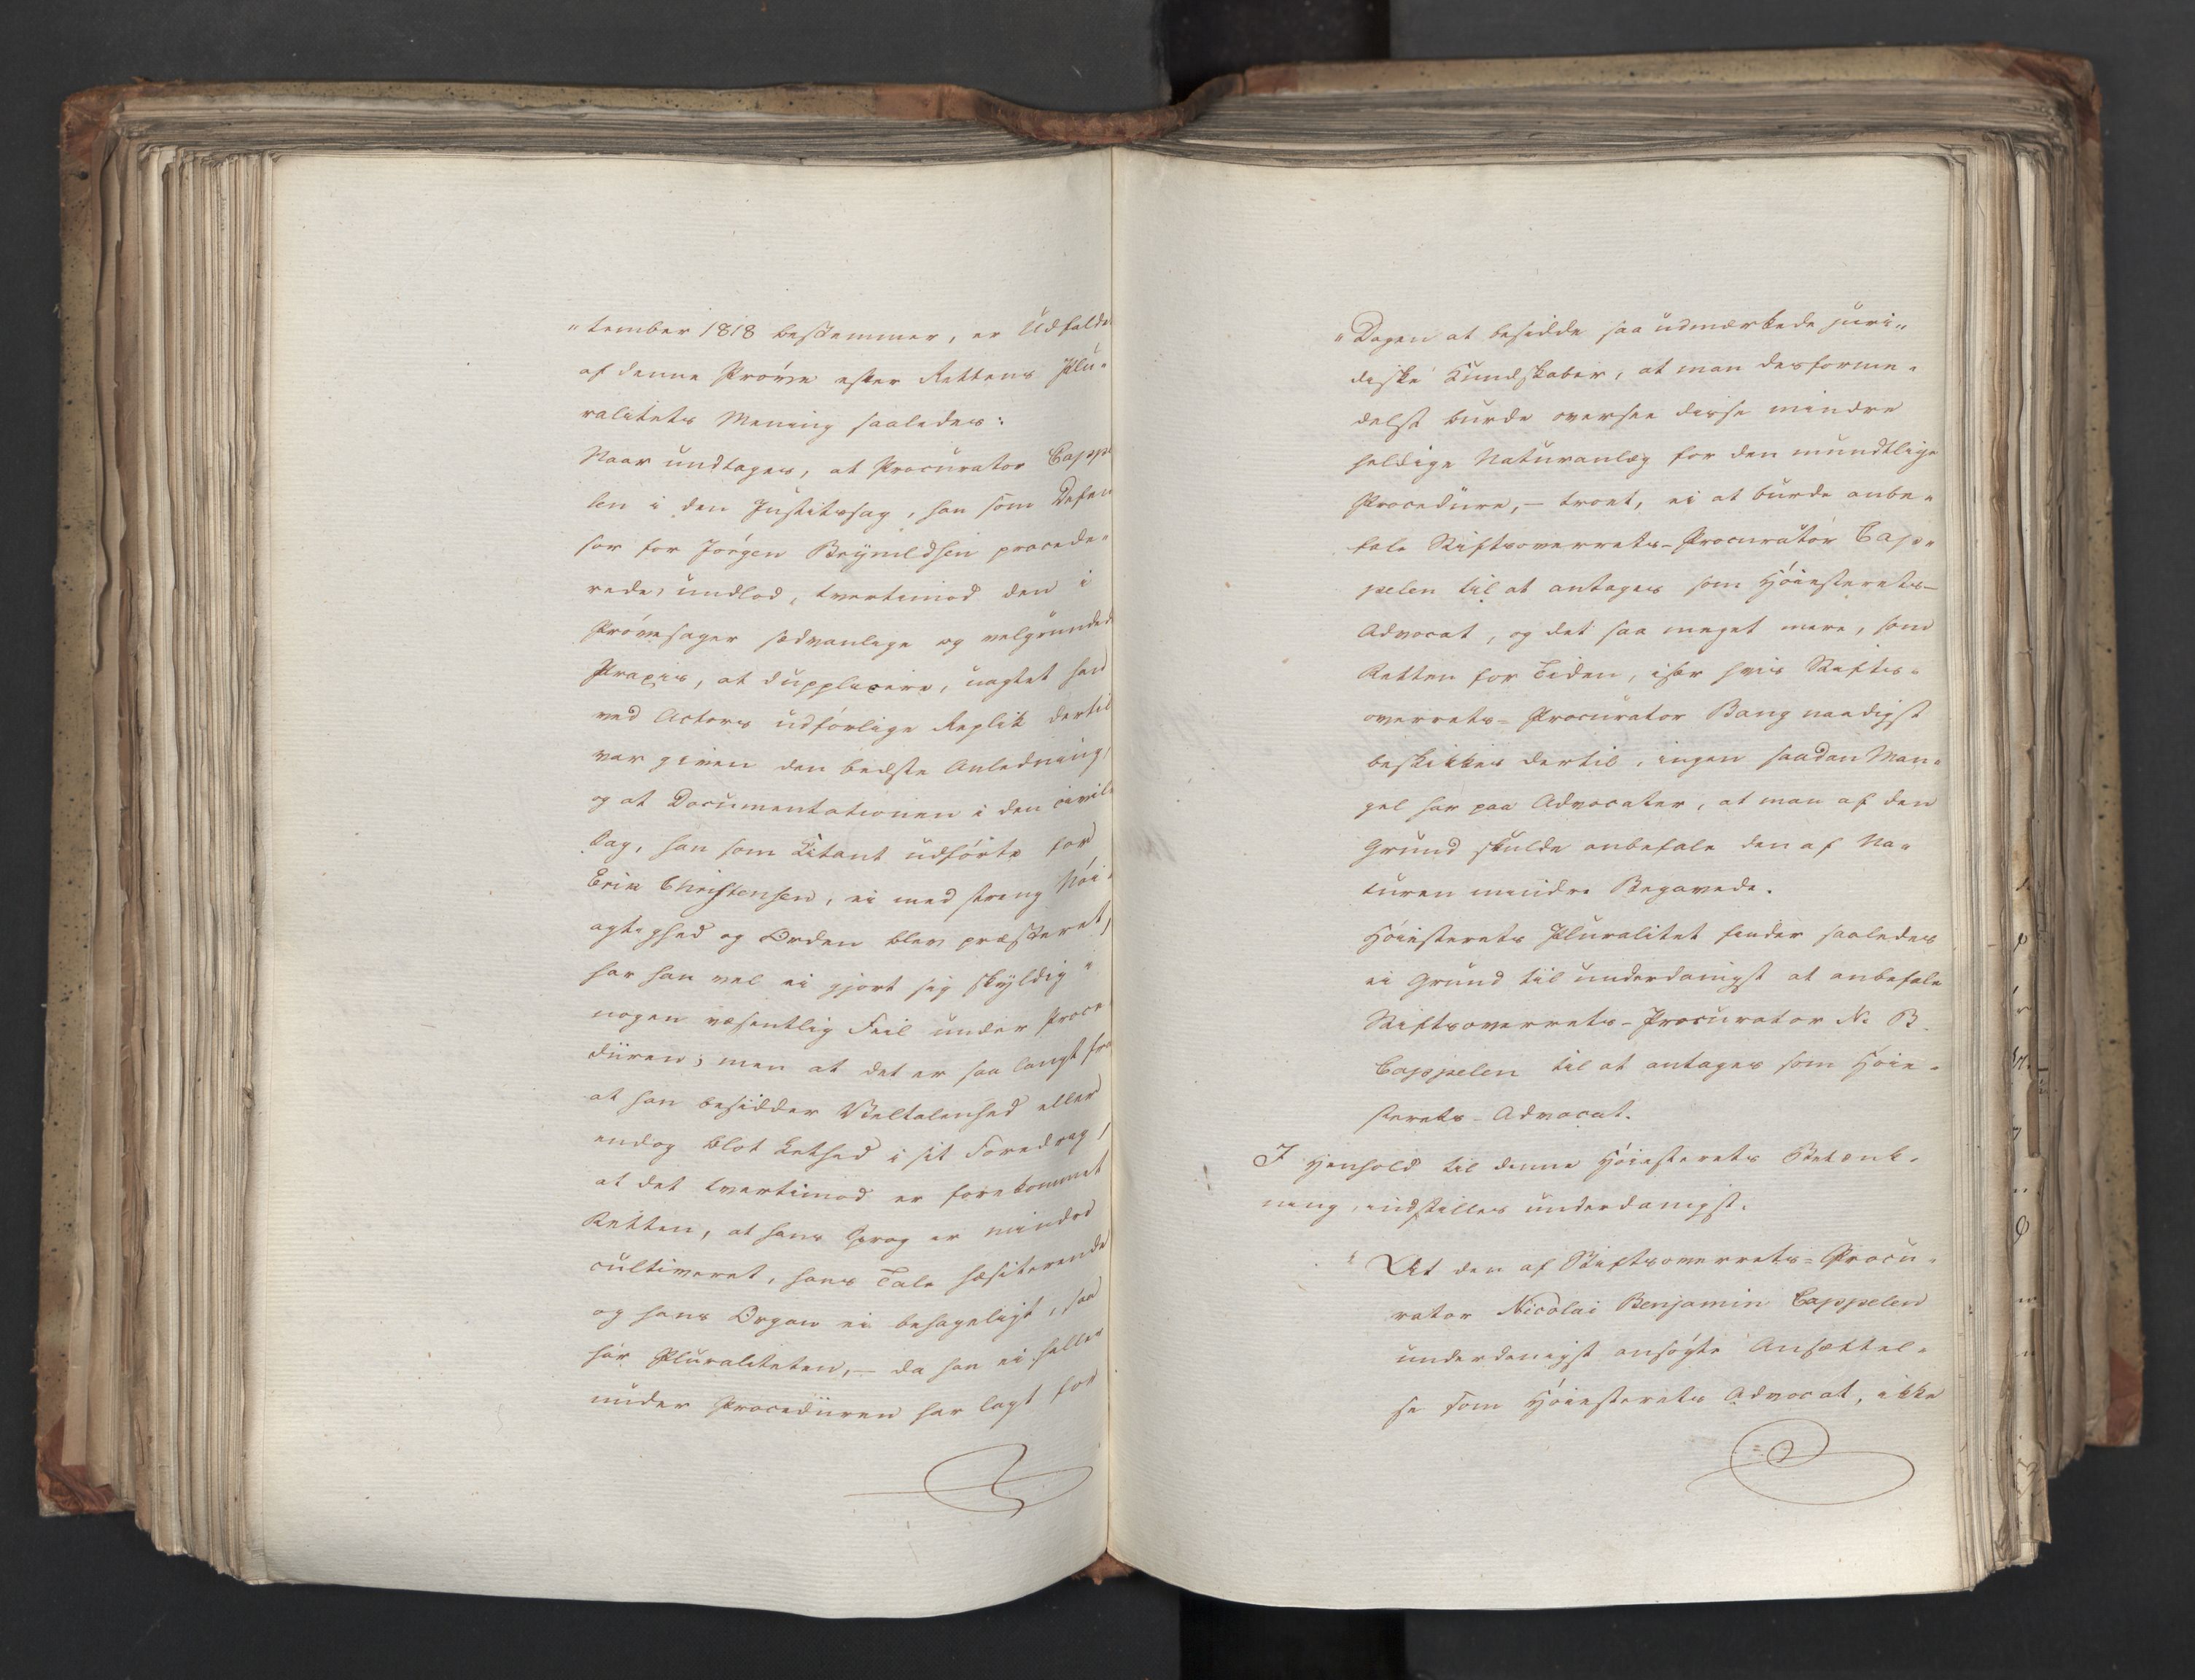 "tember 1818 bestemmer, er Udfaldet
af denne Prøve efter Rettens Plu-
ralitets Mening saaledes:
Naar undtages, at Procurator Cappe
len i den Justitssag, han som Defen
sor for Jørgen Brynildsen procede-
rede, undlod, tvertimod den i
Prøvesager sædvanlige og velgrundede
Praxis, at dupplicere, uagtet han
ved Actors udførlige Replik dertil
var given den bedste Anledning,
og at Documentationen i den civile
Sag, han som Citant udførte for
Erik Christensen, ei med streng Nøi-
agtighed og Orden blev præsteret,
har han vel ei gjort sig skyldig i
nogen væsentlig Feil under Proce
duren; men at det er saa langt fra
at han besidder Veltalenhed eller
endog blot Lethed i sit Foredrag,
at det tvertimod er forekommet
Retten, at hans Sprog er mindre
cultiveret, hans Tale hæsiterende
og hans Organ ei behageligt, saa
har Pluraliteten, – da han ei heller
under Proceduren har lagt for
"Dagen at besidde saa udmærkede juri-
diske Kundskaber, at man desforme-
delst burde oversee disse mindre
heldige Naturanlæg for den mundtlige
Procedure, – troet, ei at burde anbe-
fale Stiftsoverrets-Procurator Cap-
pelen til at antages som Høiesterets-
Advocat, og det saa meget mere, som
Retten for Tiden, især hvis Stifts-
overrets-Procurator Bang naadigst
beskikkes dertil, ingen saadan Man-
gel har paa Advocater, at man af den
Grund skulde anbefale den af Na-
turen mindre Begavede.
Høiesterets Pluralitet finder saaledes
ei Grund til underdanigst at anbefale
Stiftsoverrets-Procurator N. B.
Cappelen til at antages som Høie-
sterets-Advocat.
I Henhold til denne Høiesterets Betænk-
ning, indstilles underdanigst:
"At den af Stiftsoverrets-Procu-
rator Nicolai Benjamin Cappelen
underdanigst ansøgte Ansættel-
se som Høiesterets Advocat, ikke